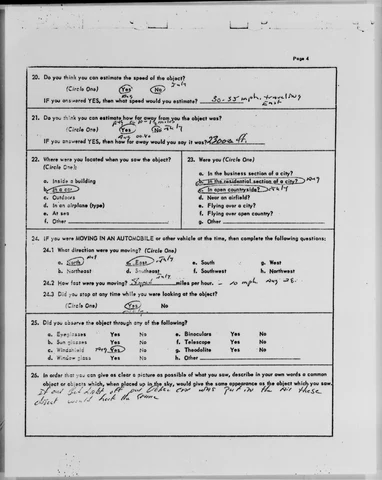 Page 4
20. Do you think you can estimate the speed of the object?
(Circle One) Yes No July
Aug
IF you answered YES, then what speed would you estimate? 30-35 mph. traveling East
21. Do you think you can estimate how far away from you the object was?
(Circle One) Yes No July
IF you answered YES, then how far away would you say it was? 3000 ft.
22. Where were you located when you saw the object?
(Circle One)
a. Inside a building
b. In a car
c. Outdoors
d. In an airplane (type)
e. At sea
f. Other
23. Were you (Circle One)
a. In the business section of a city?
b. In the residential section of a city? Aug
c. In open countryside? July
d. Near an airfield?
e. Flying over a city?
f. Flying over open country?
g. Other
24. IF you were MOVING IN AN AUTOMOBILE or other vehicle at the time, then complete the following questions:
24.1 What direction were you moving? (Circle One)
Aug July
a. North c. East e. South g. West
b. Northeast d. Southeast f. Southwest h. Northwest
July
24.2 How fast were you moving? miles per hour. - 10 mph Aug 28.
24.3 Did you stop at any time while you were looking at the object?
(Circle One) Yes No
25. Did you observe the object through any of the following?
a. Eyeglasses Yes No e. Binoculars Yes No
b. Sun glasses Yes No f. Telescope Yes No
c. Windshield Aug Yes No g. Theodolite Yes No
d. Window glass Yes No h. Other
26. In order that you can give as clear a picture as possible of what you saw, describe in your own words a common
object or objects which, when placed up in the sky, would give the same appearance as the object which you saw.
If one light off our car was put in the air those
object would look the same